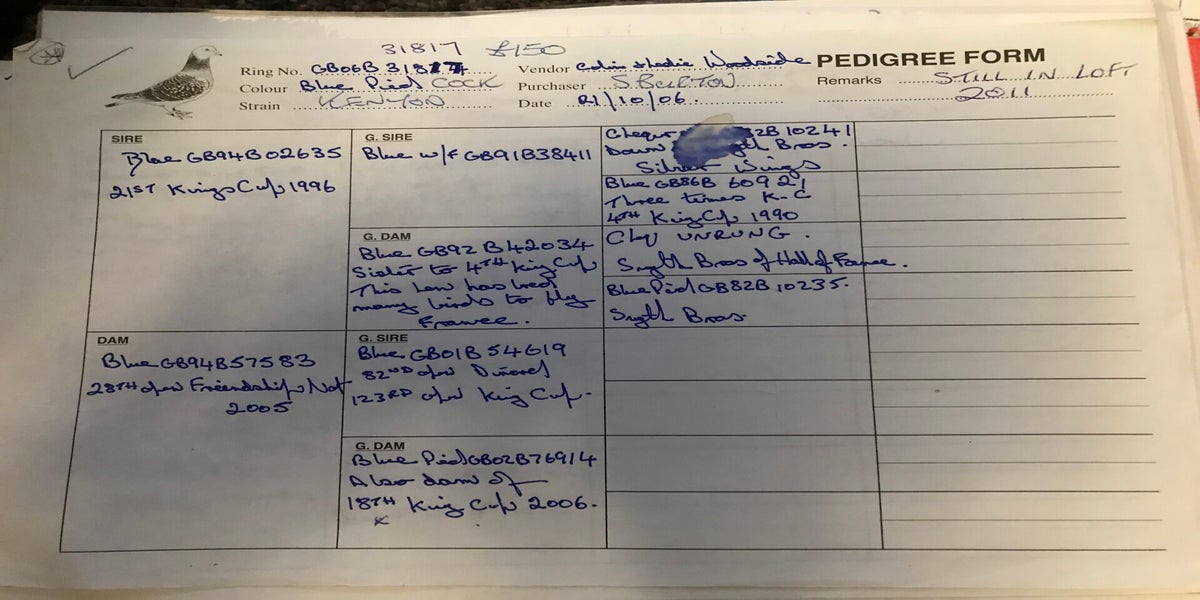 31817 £150
PEDIGREE FORM
Ring No. GB06B 31817
Vendor Colin & Hadie Woodside
Remarks STILL IN LOFT
2011
Colour Blue Pied COCK
Purchaser S. BURTON
Strain KENYON
Date 21/10/06.
SIRE
Blue GB94B02635
21ST Kings Cup 1996
G. SIRE
Blue w/f GB91B38411
Chequer 82B10241
Down Bros.
Silver Wings
Blue GB86B 60921
Three times K.C
4TH King Cup 1990
G. DAM
Blue GB92B42034
Sister to 4TH King Cup
This hen has bred
many birds to fly
France.
Chq UNRUNG.
Smyth Bros of Hall of France.
Blue Pied GB82B 10235.
Smyth Bros.
DAM
Blue GB94B57583
28TH open Friendship Nat
2005
G. SIRE
Blue GB01B54619
82ND open Dinard
123RD open King Cup.
G. DAM
Blue Pied GB02B76914
Also dam of
18TH King Cup 2006.